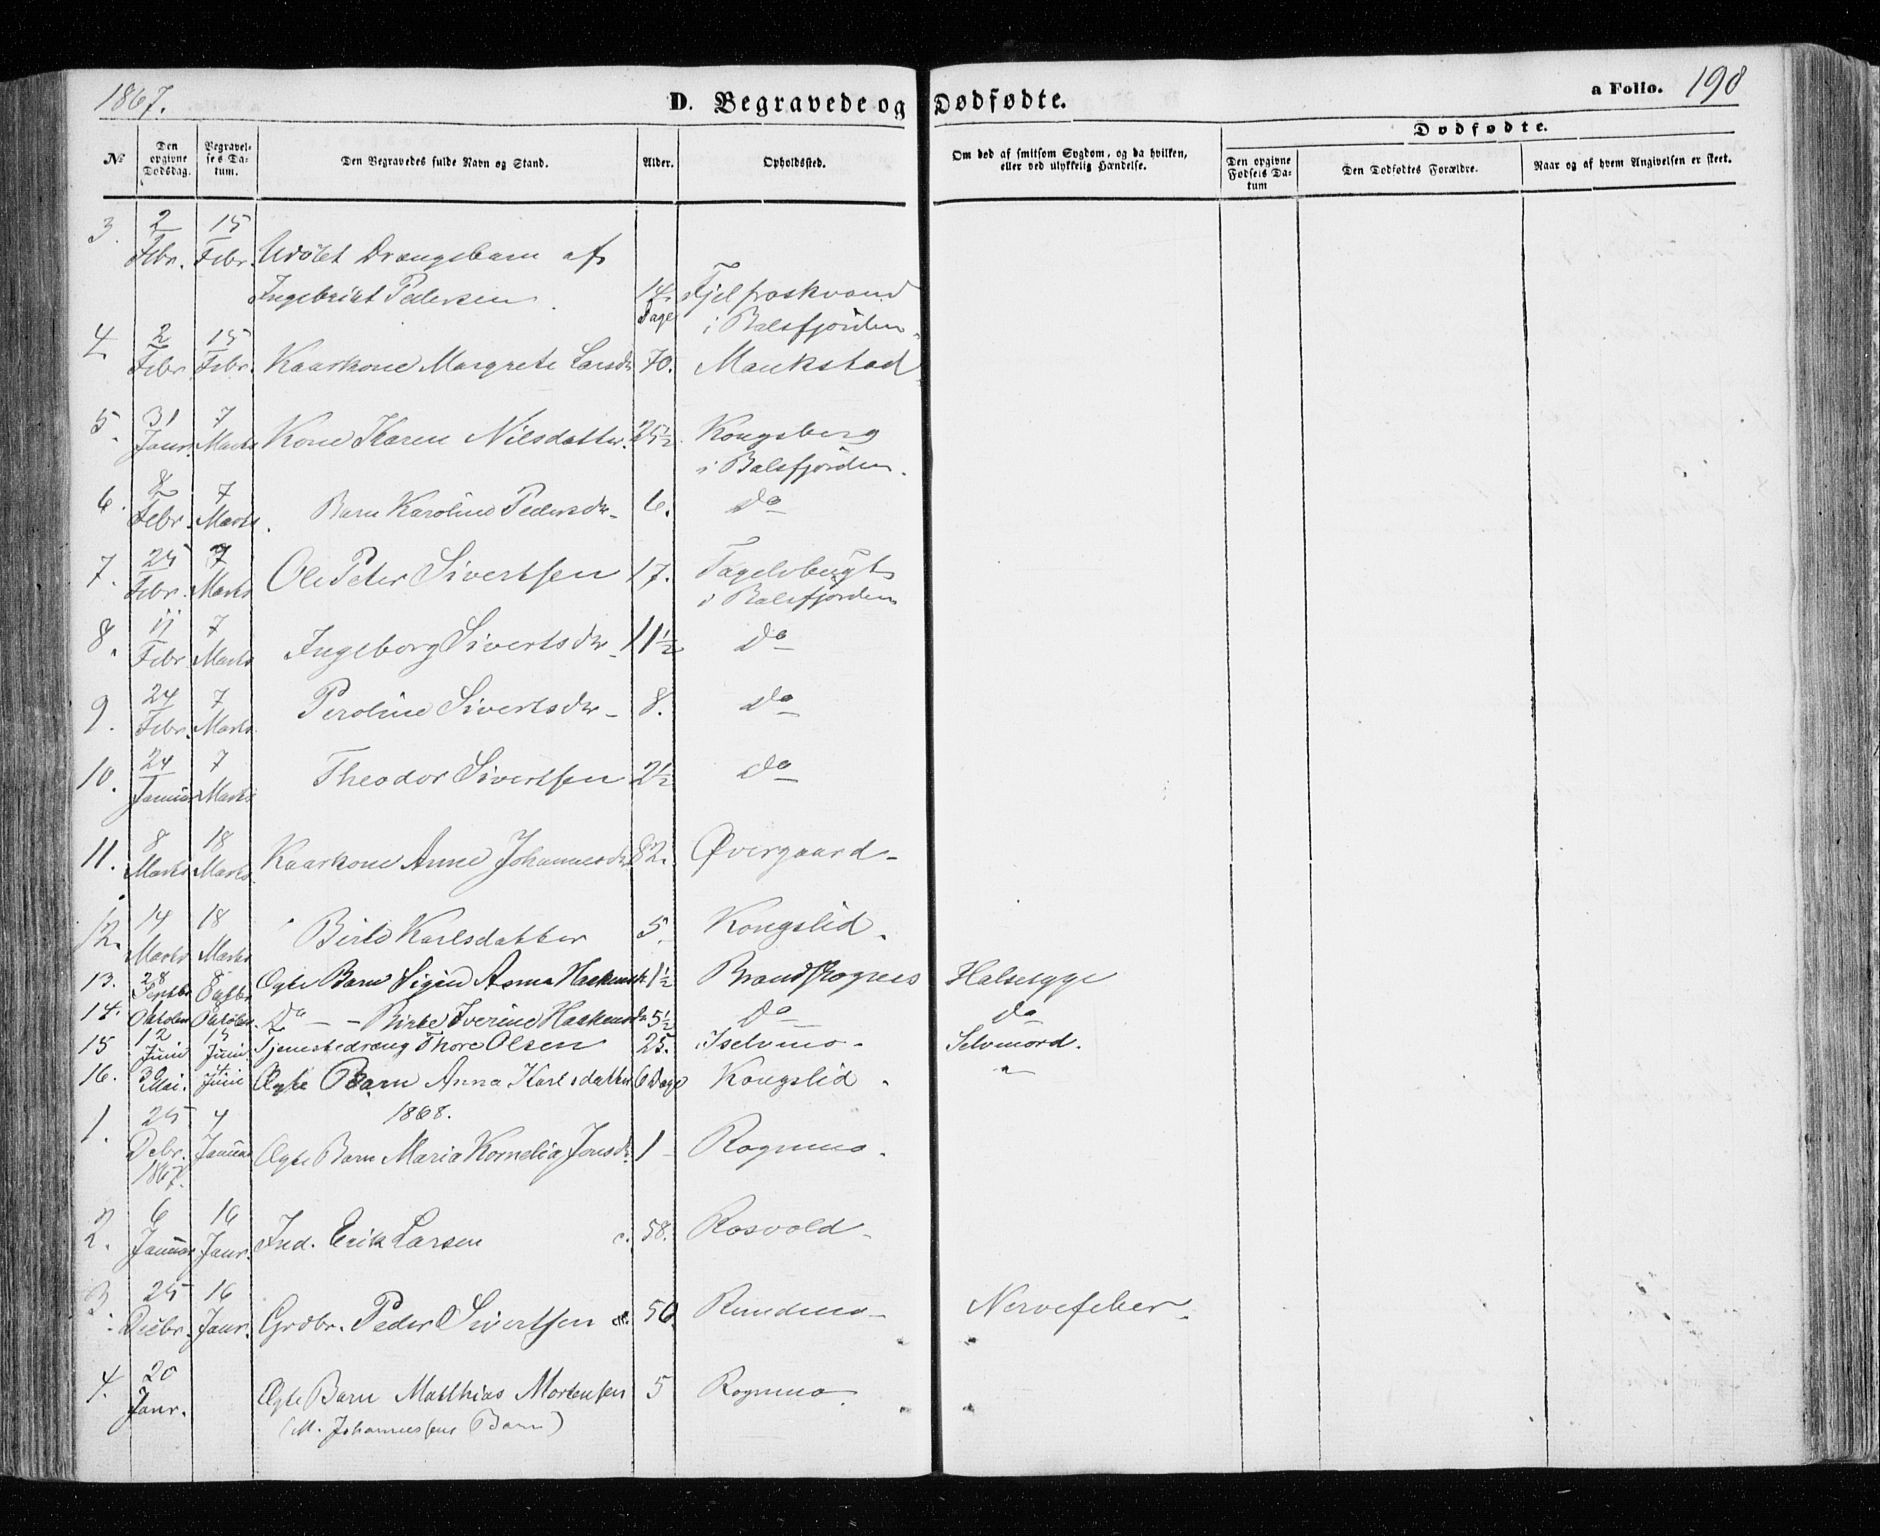 1867.
D. Begravede og Dødfødte.
a Folio. 190
No
Den opgivne Dødsdag.
Begravelses Datum.
Den Begravedes fulde Navn og Stand.
Alder.
Opholdssted.
Om død af smitsom Sygdom, og da hvilken, eller ved ulykkelig Hændelse.
Dødfødte.
Den opgivne Fødsels Datum
Den Dødfødtes Forældre.
Naar og af hvem Angivelsen er skeet.
3. 2 Febr. 15 Febr. Udøbt Drængebarn af
Ingebrikt Pedersen. 14 Dage Fjelfroskvand
i Balsfjorden.
4. 2 Febr 15 Febr. Kaarkone Margrete Larsdr 70. Maukstad
5. 31 Janr. 7 Marts Kone Karen Nilsdatter. 25½ Kongsberg
i Balsfjorden.
6. 8 Febr. 7 Marts. Barn Karoline Pedersdr 6. do
7. 25 Febr. 7 Marts Ole Peter Sivertsen 17. Tagelvbugt
i Balsfjorden
8. 11 Febr 7 Marts Ingeborg Sivertsdr 11½ do
9. 24 Febr. 7 Marts Peroline Sivertsdr 8. do
10. 24 Januar 7 Marts Theodor Sivertsen 2½ do
11. 8 Marts 18 Marts. Kaarkone Anne Johannesdr 82. Øvergaard
12. 14 Marts 18 Marts Birte Karlsdatter 5. Kongslid.
13. 28 Septbr 8 Octbr Ægte Barn Sigrid Anna Hackensdr 1½ Brandskognes Halssyge
14. October 8 October. do Birte Iverine Hackensdr 5½ do do
15 12 Juni 15 Juni Tjenestedræng Thore Olsen 25. Iselvmo. Selvmord.
16. 30 Mai. 14 Juni Ægte Barn Anna Karlsdatter 6 Dage Kongslid. "
1868.
1. 25 Debr. 1867. 4 Januar Ægte Barn Maria Kornelia Jonsdr. 1 Rognmo.
2. 6 Januar 16 Janr. Ind. Erik Larsen c. 58. Rosvold
3. 25 Decbr. 16 Janr. Grdbr. Peder Sivertsen c. 50. Rundmo Nervefeber.
4. 20 Janr. Ægte Barn Matthias Mortensen 5 Rognmo.
(M. Johannessens Barn)